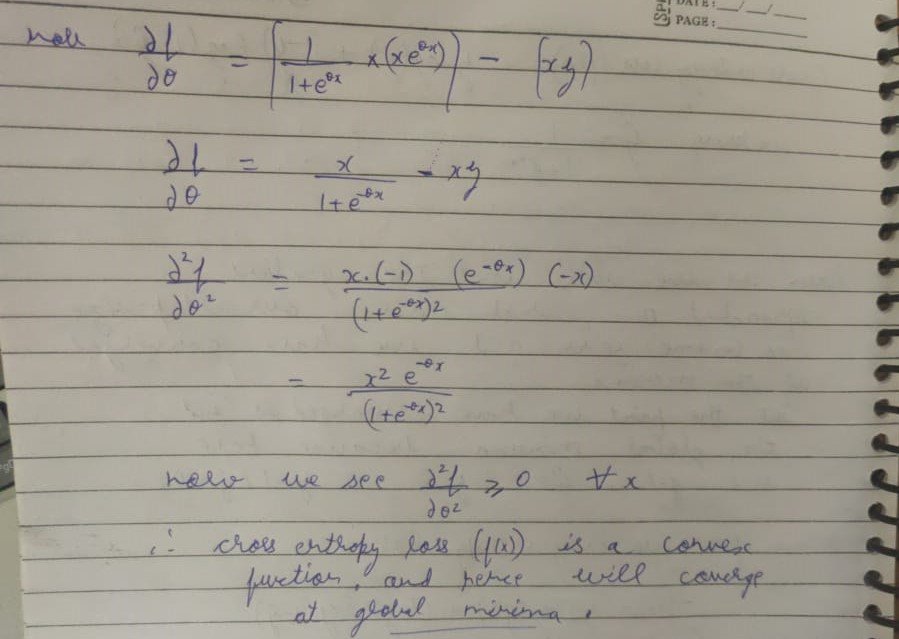 DATE: __/__/__
PAGE:
now ∂f/∂θ = [1/(1+e^{θx}) × (xe^{θx})] - [xy]
∂f/∂θ = x/(1+e^{-θx}) - xy
∂²f/∂θ² = x.(-1) (e^{-θx}) (-x)/(1+e^{-θx})²
= x² e^{-θx}/(1+e^{-θx})²
now we see ∂²f/∂θ² ⩾ 0 ∀ x
∴ cross entropy loss (f(x)) is a convex
function, and hence will converge
at global minima.